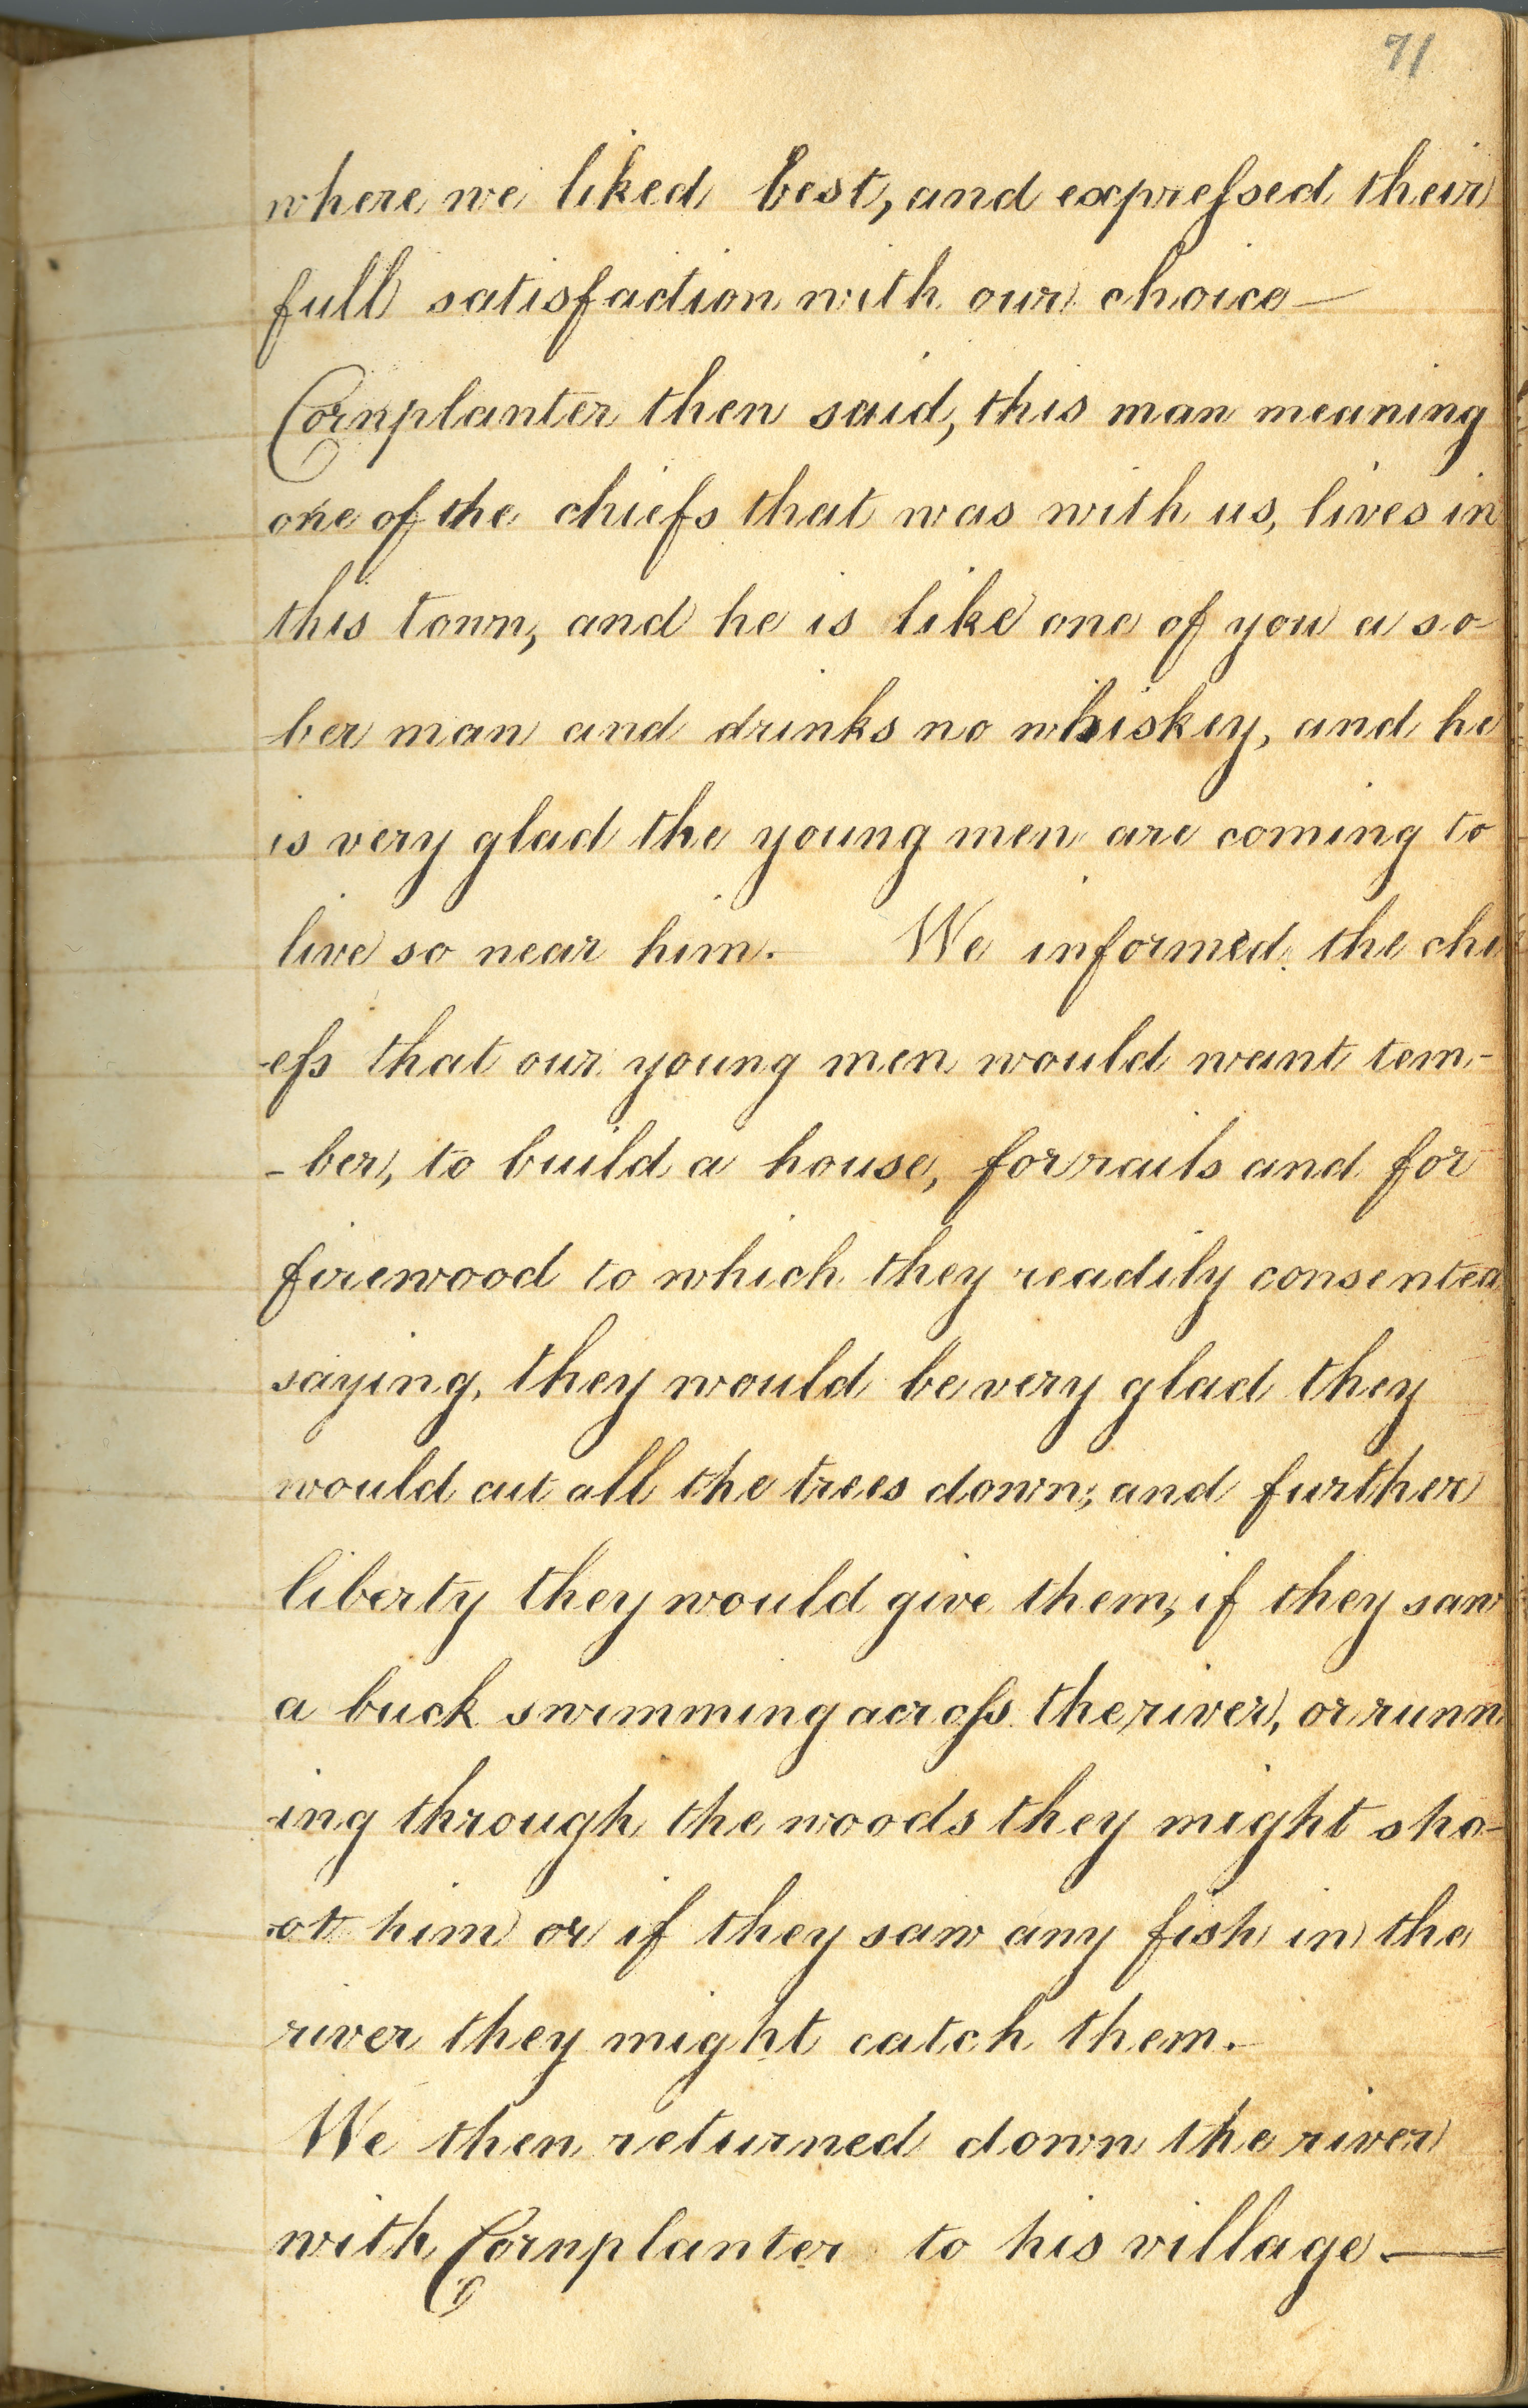 71
where we liked best, and expreſsed their
full satisfaction with our choice —
Cornplanter then said, this man meaning
one of the chiefs that was with us, lives in
this town, and he is like one of you a so-
ber man and drinks no whiskey, and he
is very glad the young men are coming to
live so near him. — We informed the chi
-efs that our young men would want tem-
-ber, to build a house, for rails and for
firewood to which they readily consented
saying, they would be very glad they
would cut all the trees down; and further
liberty they would give them, if they saw
a buck swimming acroſs the river, or runn
-ing through the woods they might sho-
-ot him or if they saw any fish in the
river they might catch them. —
We then returned down the river
with Cornplanter to his village. —